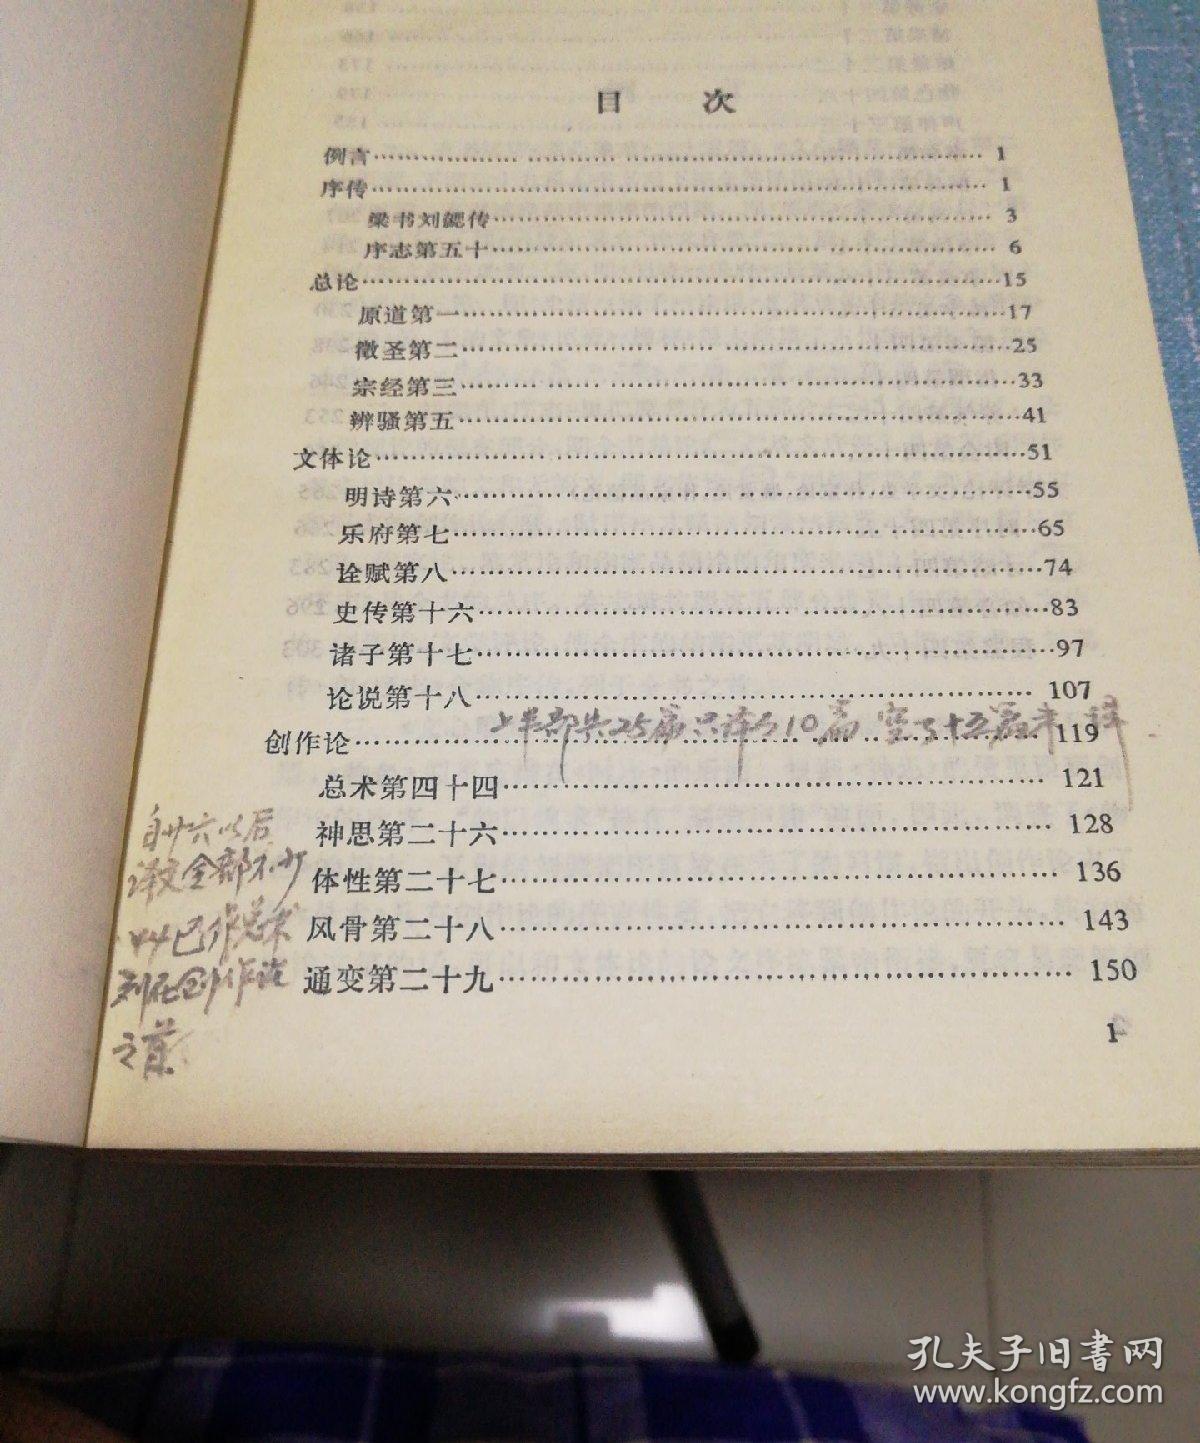 目 次
例言 1
序传 1
梁书刘勰传 3
序志第五十 6
总论 15
原道第一 17
徵圣第二 25
宗经第三 33
辨骚第五 41
文体论 51
明诗第六 55
乐府第七 65
诠赋第八 74
史传第十六 83
诸子第十七 97
论说第十八 107
上半部共25篇只译了10篇 空了十五篇未译
创作论 119
总术第四十四 121
神思第二十六 128
体性第二十七 136
风骨第二十八 143
通变第二十九 150
自廿六以后
译文全部不少
列在创作论
之首
1
孔夫子旧书网
www.kongfz.com